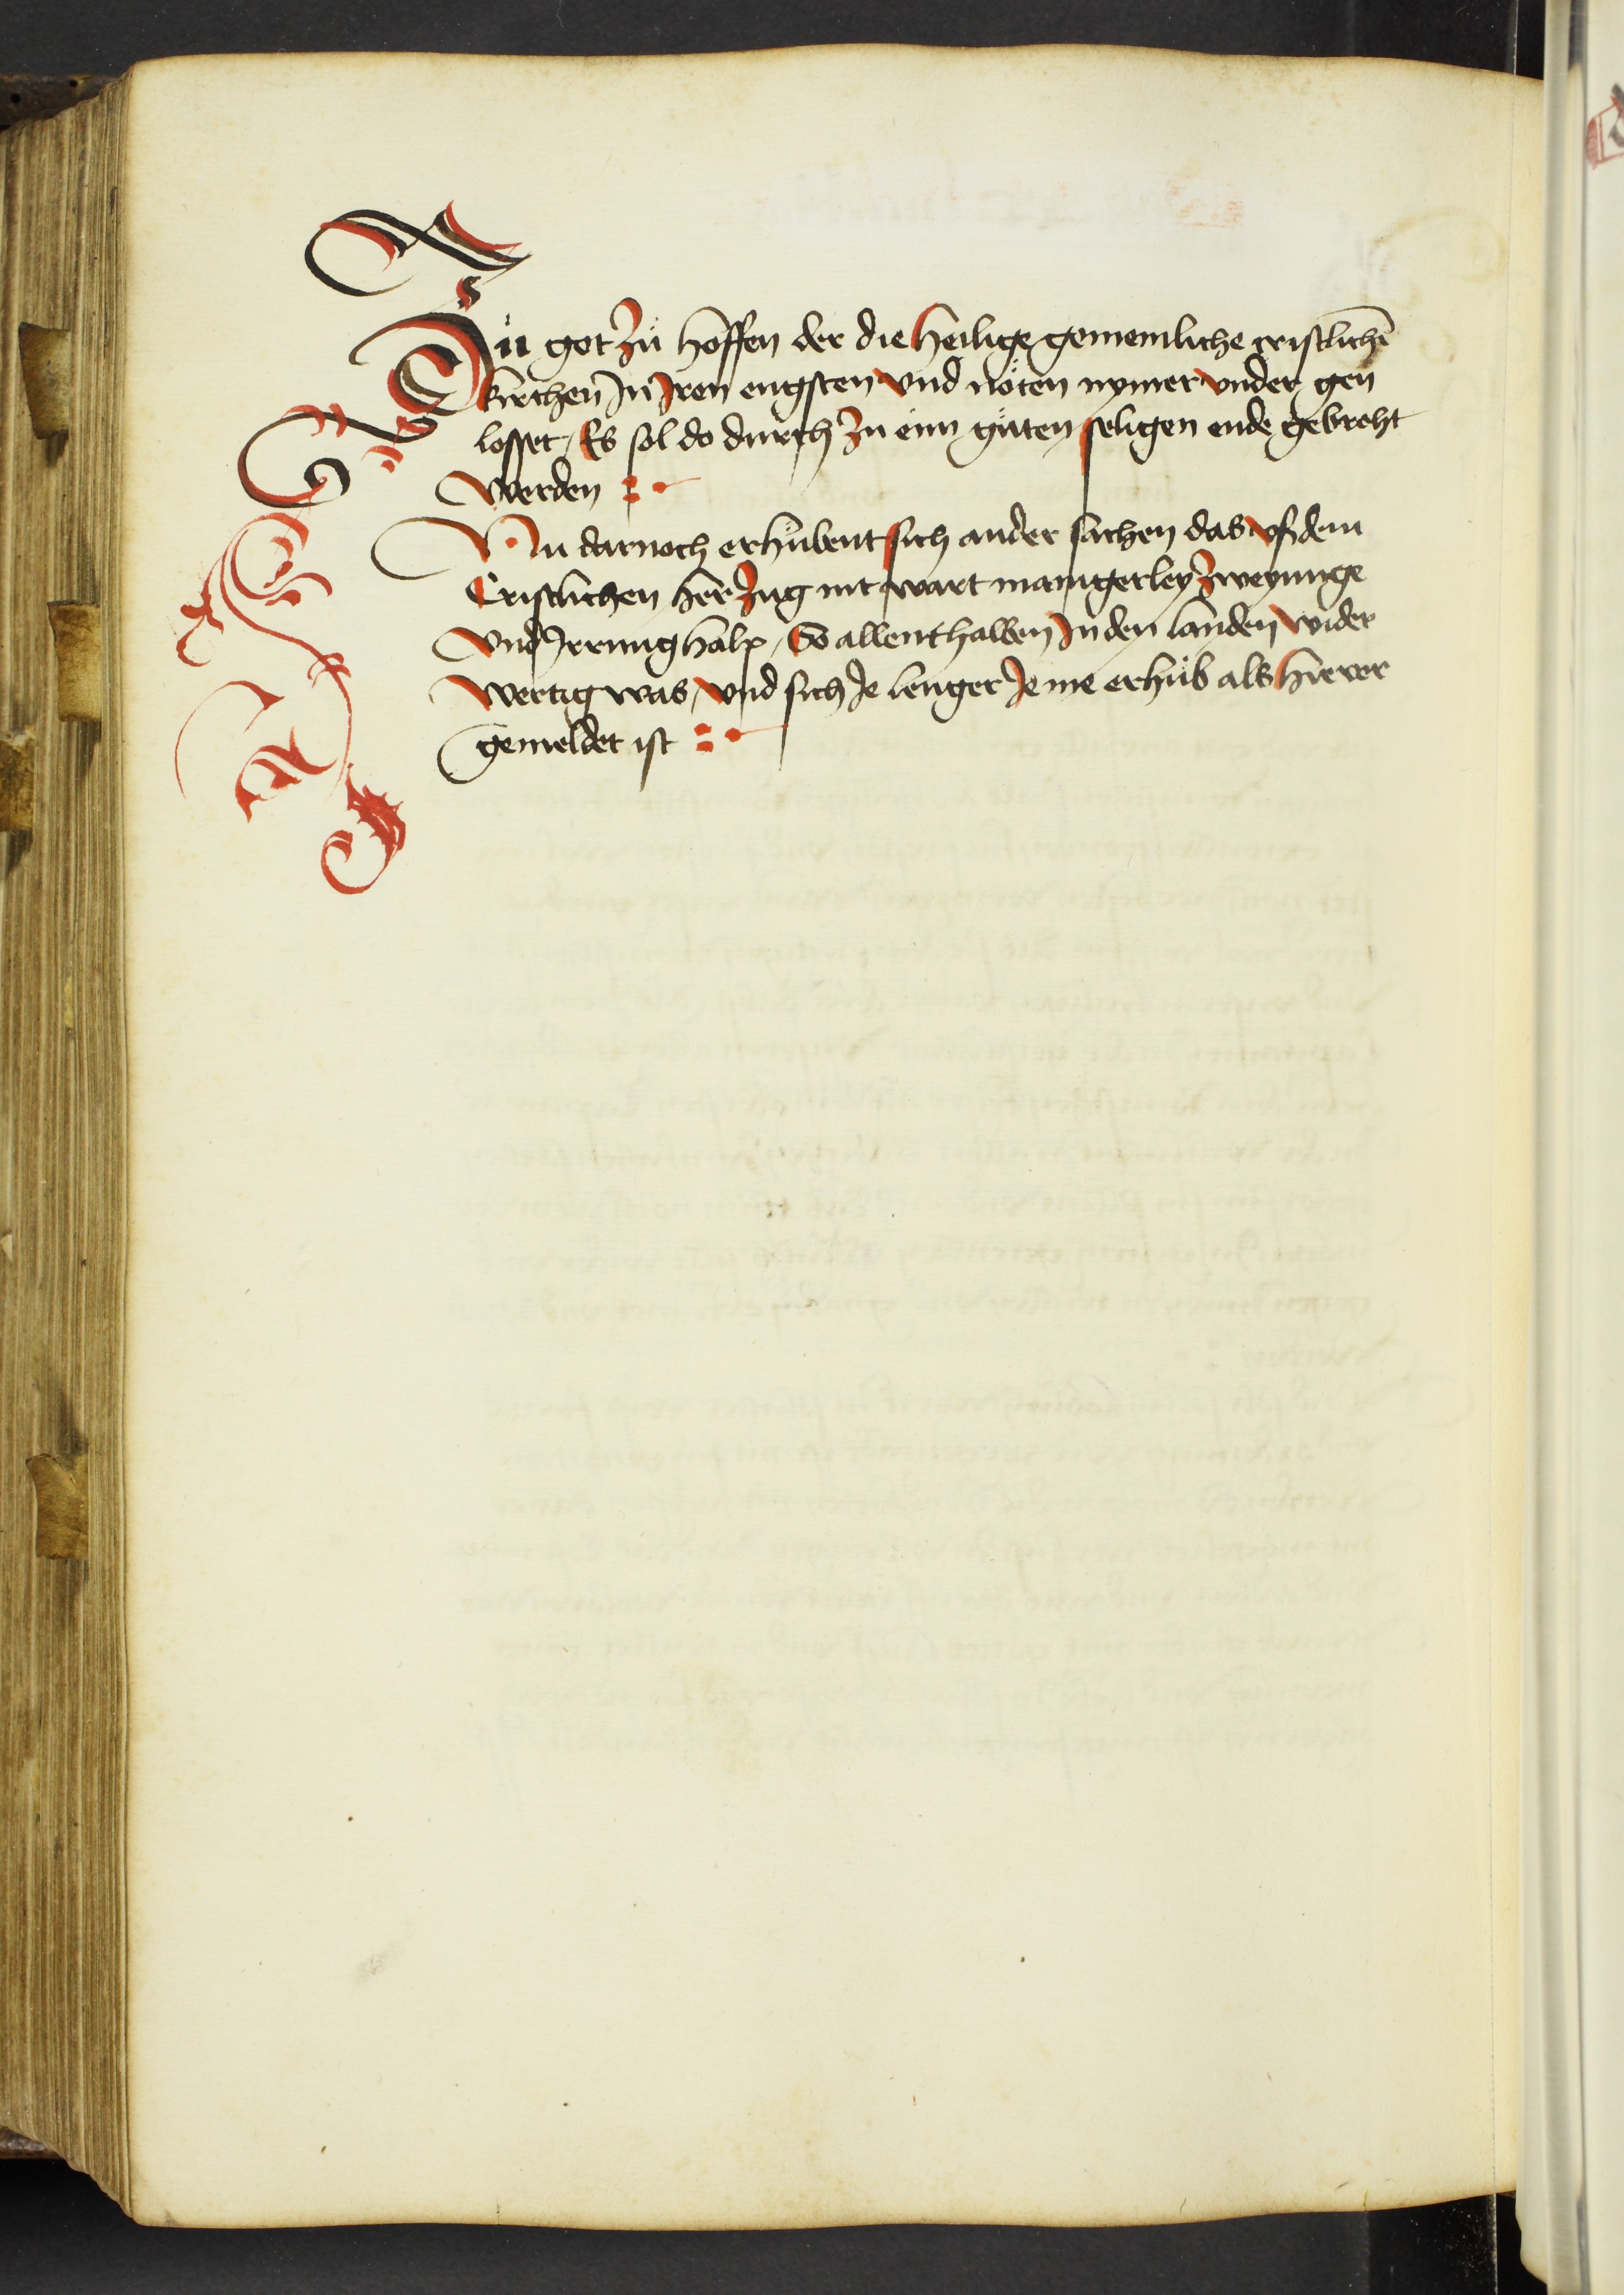 Zü got zü hoffen der die heilige gemeinliche cristlichē
kirchen jn jren engsten vnd nöten nymer vnder gen
losset / Es sol do durch zu eim güten seligen ende gebroht
werden :·
Nu darnoch erhübent sich ander sachen das vß dem
Cristlichen her zug nit wart manigerley zweyunge
vnd jrrung halp / So allenthalben jn den landen wider
wertig was / vnd sich je lenger je me erhüb als hie vor
gemeldet ist :·